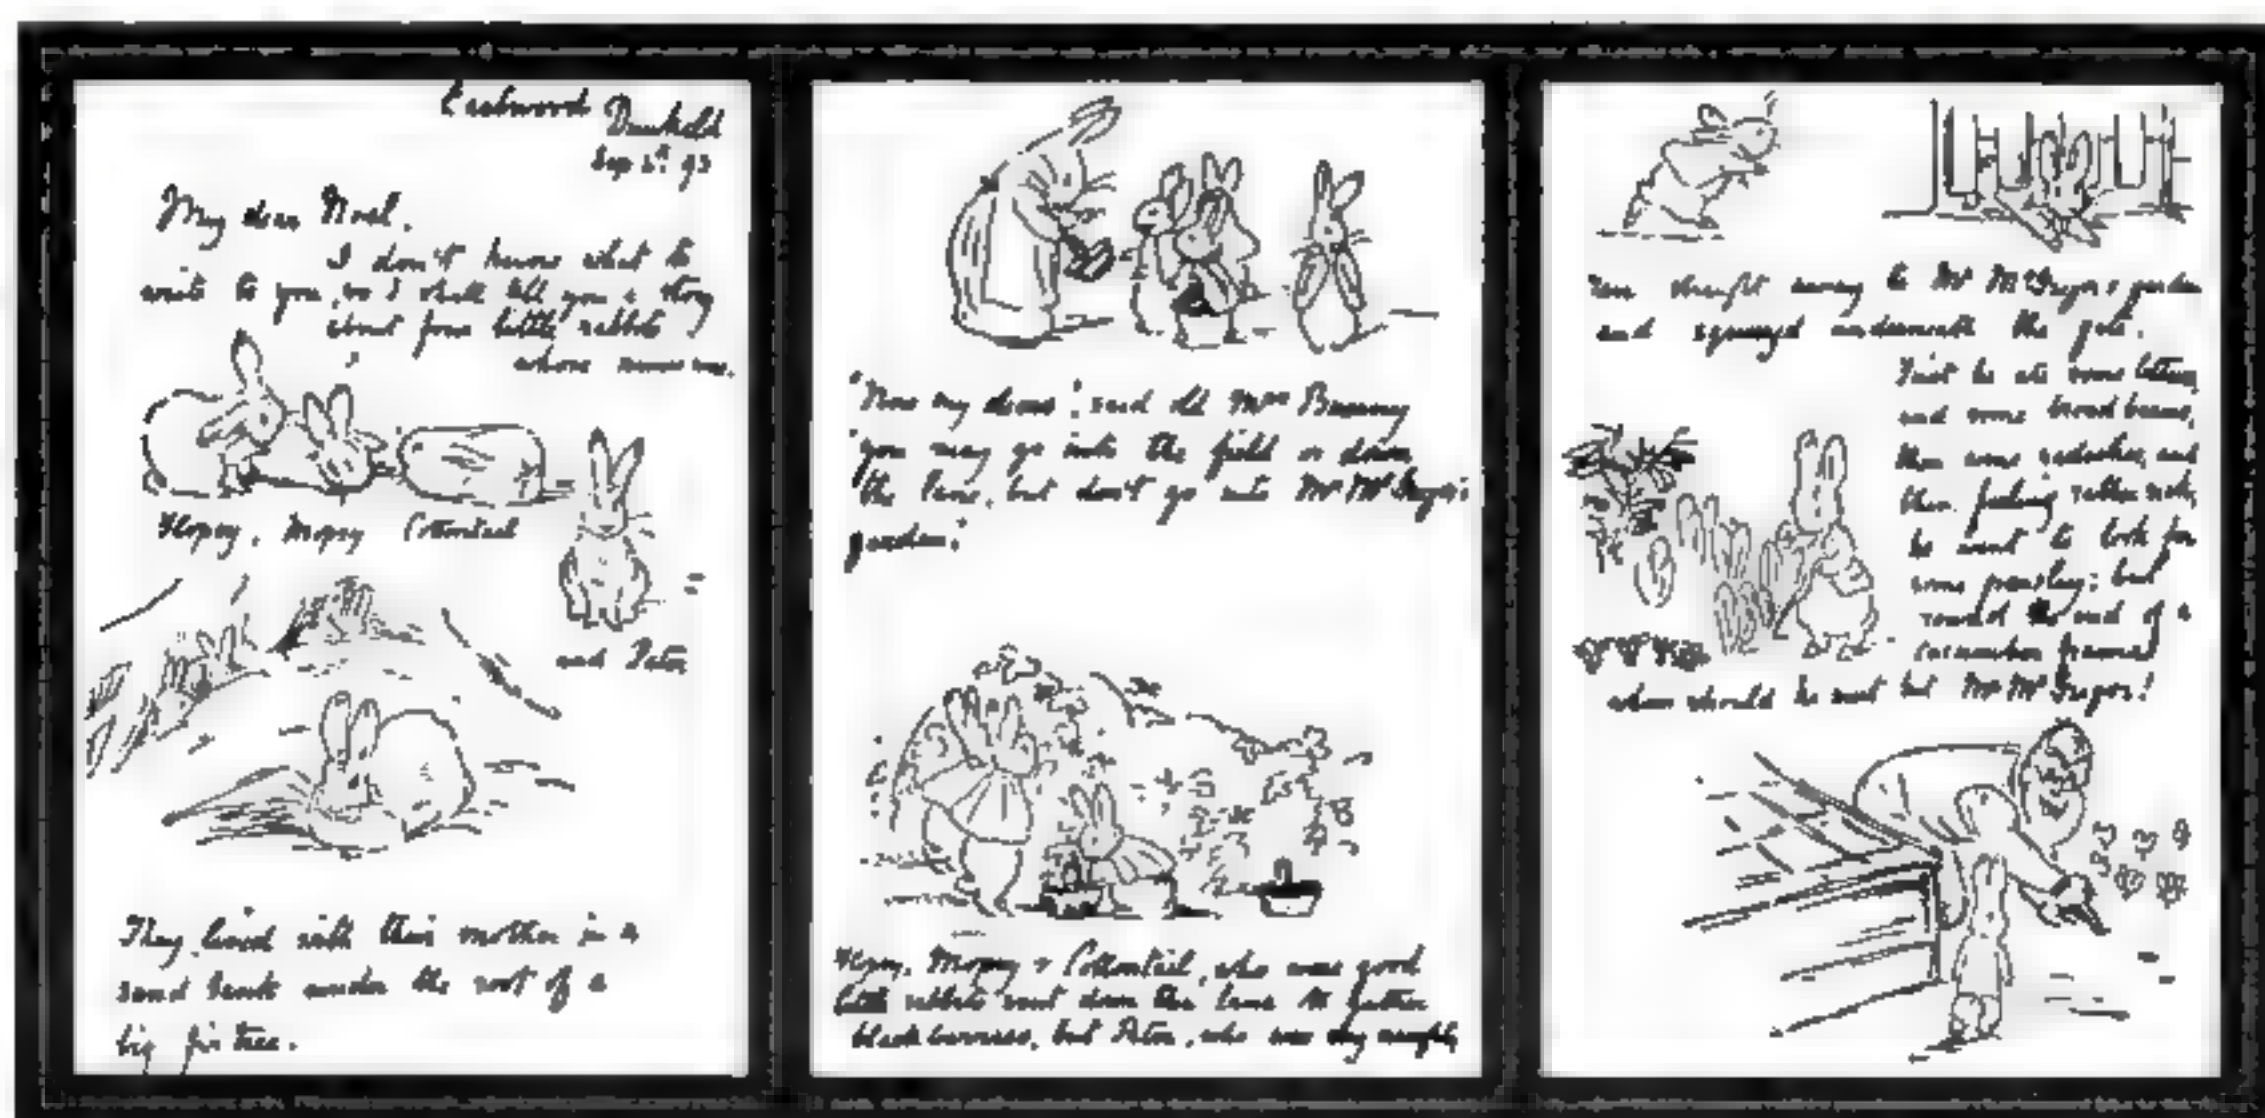 Eastwood Dunkeld
Sep 4th 93
My dear Noel,
I don't know what to
write to you, so I shall tell you a story
about four little rabbits
whose names were
Flopsy, Mopsy Cottontail
and Peter
They lived with their mother in a
sand bank under the root of a
big fir tree.
"Now my dears", said old Mrs Bunny
"you may go into the field or down
the lane, but don't go into Mr McGregor's
garden."
Flopsy, Mopsy & Cottontail, who were good
little rabbits went down the lane to gather
blackberries, but Peter, who was very naughty
ran straight away to Mr McGregor's garden
and squeezed underneath the gate.
First he ate some lettuce,
and some broad beans,
then some radishes, and
then, feeling rather sick,
he went to look for
some parsley; but
round the end of a
cucumber frame
whom should he meet but Mr McGregor!